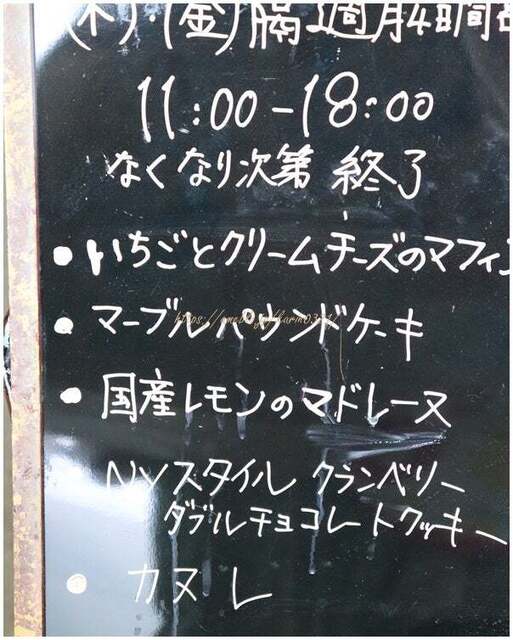 (木)・(金)隔週月4日間
11:00-18:00
なくなり次第 終了
• いちごとクリームチーズのマフィン
• マーブルパウンドケーキ
• 国産レモンのマドレーヌ
NYスタイル クランベリー
ダブルチョコレートクッキー
• カヌレ